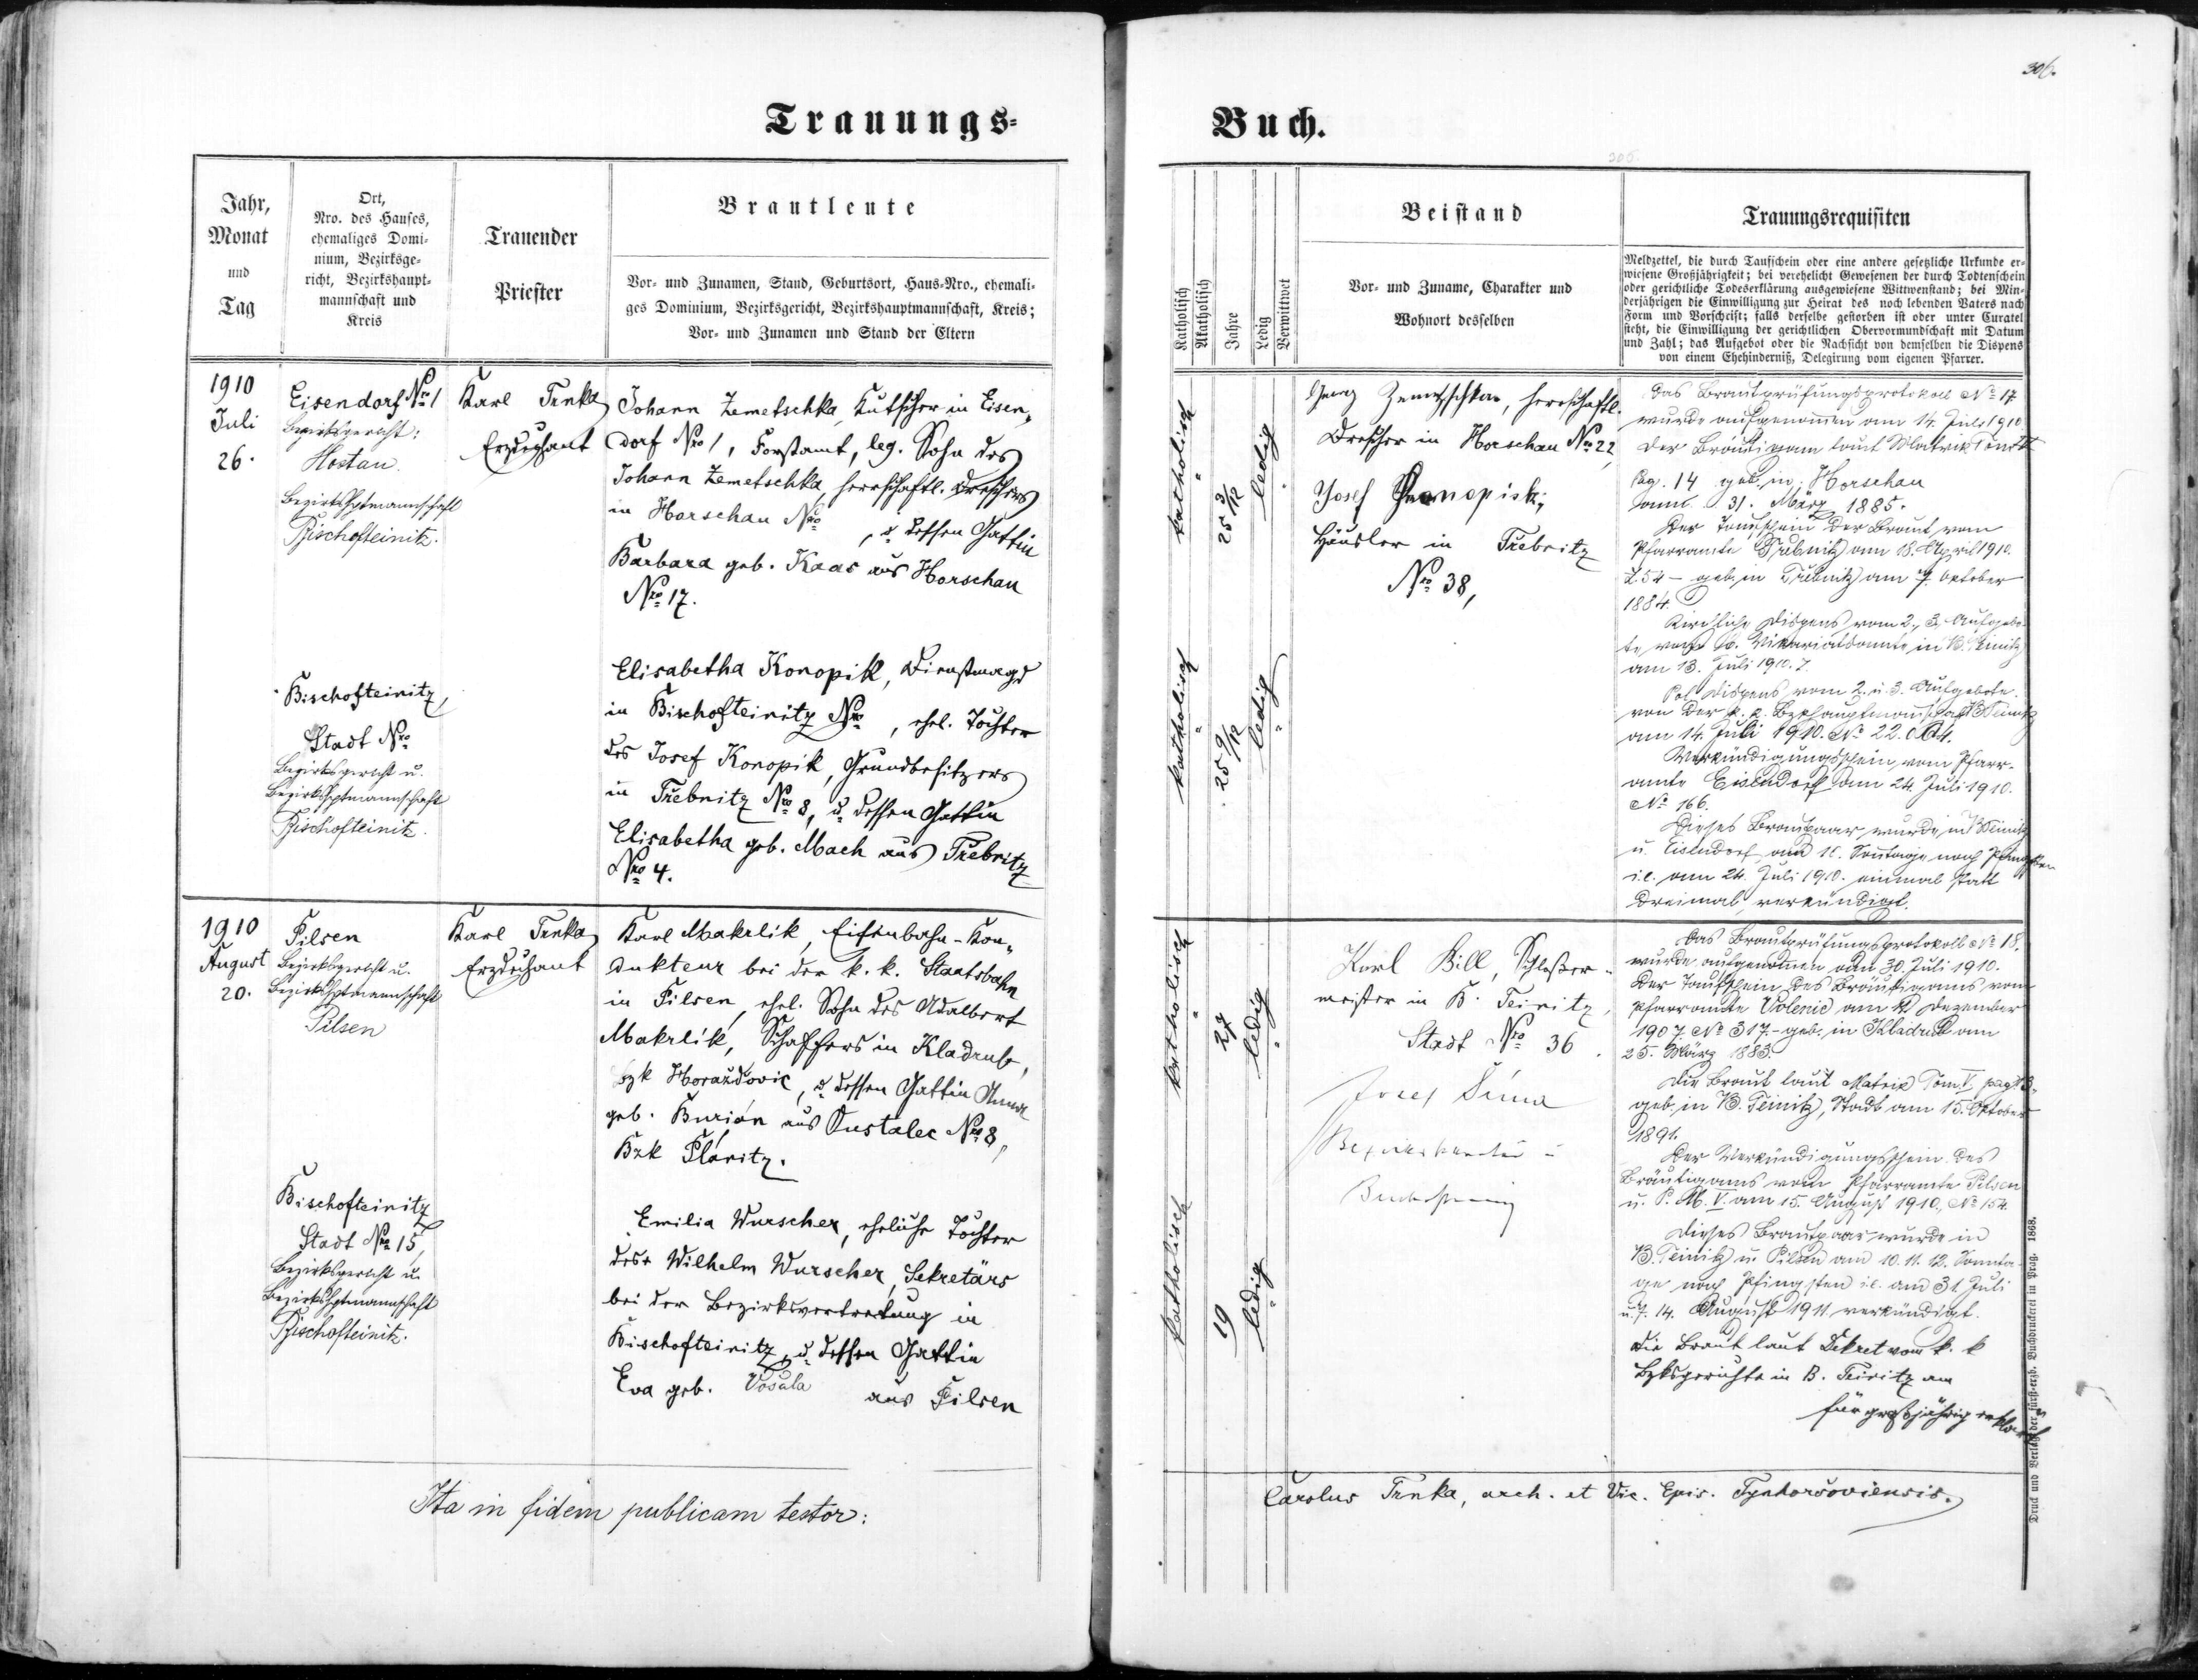 306.
Trauungs=
Buch.
Jahr,
Monat
und
Tag
Ort,
Nro. des Hauses,
ehemaliges Domi-
nium, Bezirksge-
richt, Bezirkshaupt-
mannschaft und
Kreis
Trauender
Priester
Brautleute
Vor- und Zunamen, Stand, Geburtsort, Haus-Nro., ehemali-
ges Dominium, Bezirksgericht, Bezirkshauptmannschaft, Kreis;
Vor- und Zunamen und Stand der Eltern
Katholisch
Akatholisch
Jahre
Ledig
Verwittwet
Beistand
Vor- und Zuname, Charakter und
Wohnort desselben
Trauungsrequisiten
Meldzettel, die durch Taufschein oder eine andere gesetzliche Urkunde er-
wiesene Großjährigkeit; bei verehelicht Gewesenen der durch Todtenschein
oder gerichtliche Todeserklärung ausgewiesene Wittwenstand; bei Min-
derjährigen die Einwilligung zur Heirat des noch lebenden Vaters nach
Form und Vorschrift; falls derselbe gestorben ist oder unter Curatel
steht, die Einwilligung der gerichtlichen Obervormundschaft mit Datum
und Zahl; das Aufgebot oder die Nachsicht von demselben die Dispens
von einem Ehehinderniß, Delegirung vom eigenen Pfarrer.
1910
Juli
26.
Eisendorf Nro 1
Bezirksgericht:
Hostau.
Bezirkshptmannschaft
Bischofteinitz.
Karl Trnka
Erzdechant
Johann Zemetschka, Kutscher in Eisen-
dorf Nro 1, Forstamt, leg. Sohn des
Johann Zemetschka, herrschaftl. Dreschers
in Horschau Nro , u. dessen Gattin
Barbara geb. Kaas aus Horschau
Nro 17.
Bischofteinitz,
Stadt Nro
Bezirksgericht u.
Bezirkshptmannschaft
Bischofteinitz.
Elisabetha Konopik, Dienstmagd
in Bischofteinitz Nro , ehel. Tochter
des Josef Konopik, Grundbesitzers
in Třebnitz Nro 8, u. dessen Gattin
Elisabetha geb. Mach aus Třebnitz
Nro 4.
katholisch
25 3/12
ledig
katholisch
25 9/12
ledig
Georg Zemetschka, herrschaftl.
Drescher in Horschau Nro 22,
Josef Konopik,
Häusler in Třebnitz
Nro 38,
Das Brautprüfungsprotokoll No 17
wurde aufgenommen am 14. Juli 1910
Der Bräutigam laut Matrik
Pag. 14 geb. in Horschau
am 31. März 1885.
Der Taufschein der Braut vom
Pfarramte Třebnitz am 18. April 1910.
Z. 54 – geb. in Třebnitz am 7. Oktober
1884.
Kirchliche Dispens vom 2., 3. Aufgebo-
te vom b. Vikariatsamte in B. Teinitz
am 13. Juli 1910.
Pol. Dispens vom 2. u. 3. Aufgebote
von der k. k. Bzkhauptmannschaft B Teinitz
am 14. Juli 1910. No 22.064.
Verkündigungsschein vom Pfarr-
amte Eisendorf am 24. Juli 1910.
No 166.
Dieses Brautpaar wurde in B Teinitz
u. Eisendorf am Sonntage nach Pfingsten
i. e. am 24. Juli 1910. einmal statt
dreimal verkündigt.
1910
August
20.
Pilsen
Bezirksgericht u.
Bezirkshptmannschaft
Pilsen
Karl Trnka
Erzdechant
Karl Makrlik, Eisenbahn-Kon-
dukteur bei der k. k. Staatsbahn
in Pilsen, ehel. Sohn des Adalbert
Makrlik, Schaffers in Kladrub,
Bzk Horaždovic, u. dessen Gattin Anna
geb. Burián aus Kustalec Nro 8,
Bzk Planitz.
Bischofteinitz
Stadt Nro 15,
Bezirksgericht u.
Bezirkshptmannschaft
Bischofteinitz.
Emilia Wurscher, eheliche Tochter
des Wilhelm Wurscher, Sekretärs
bei der Bezirksvertretung in
Bischofteinitz, u. dessen Gattin
Eva geb. Vosala aus Pilsen
katholisch
27
ledig
katholisch
19
ledig
Karl Bill, Schloßer-
meister in B. Teinitz,
Stadt Nro 36.
Josef
Das Brautprüfungsprotokoll No 18.
wurde aufgenommen am 30. Juli 1910.
Der Taufschein des Bräutigams vom
Pfarramte Volenic am Dezember
1907 No 317 – geb. in Kladrub am
25. März 1883.
Die Braut laut Matrik Tom V pag
geb. in B. Teinitz, Stadt am 15. Oktober
1891.
Der Verkündigungsschein des
Bräutigams vom Pfarramte Pilsen
u. P. M. V. am 15. August 1910, No 154.
Dieses Brautpaar wurde in
B. Teinitz u. Pilsen am 10. 11. 12. Sonnta-
ge nach Pfingsten i. e. am 31. Juli
u. 7. 14. August 1911 verkündigt.
Die Braut laut Dekret vom k. k
Bzksgerichte in B. Teinitz am
für großjährig erklärt
Ita in fidem publicam testor:
Carolus Trnka, arch. et Vic. Epis. Tynhoršoviensis.
Druck und Verlag der fürst-erzb. Buchdruckerei in Prag. 1868.